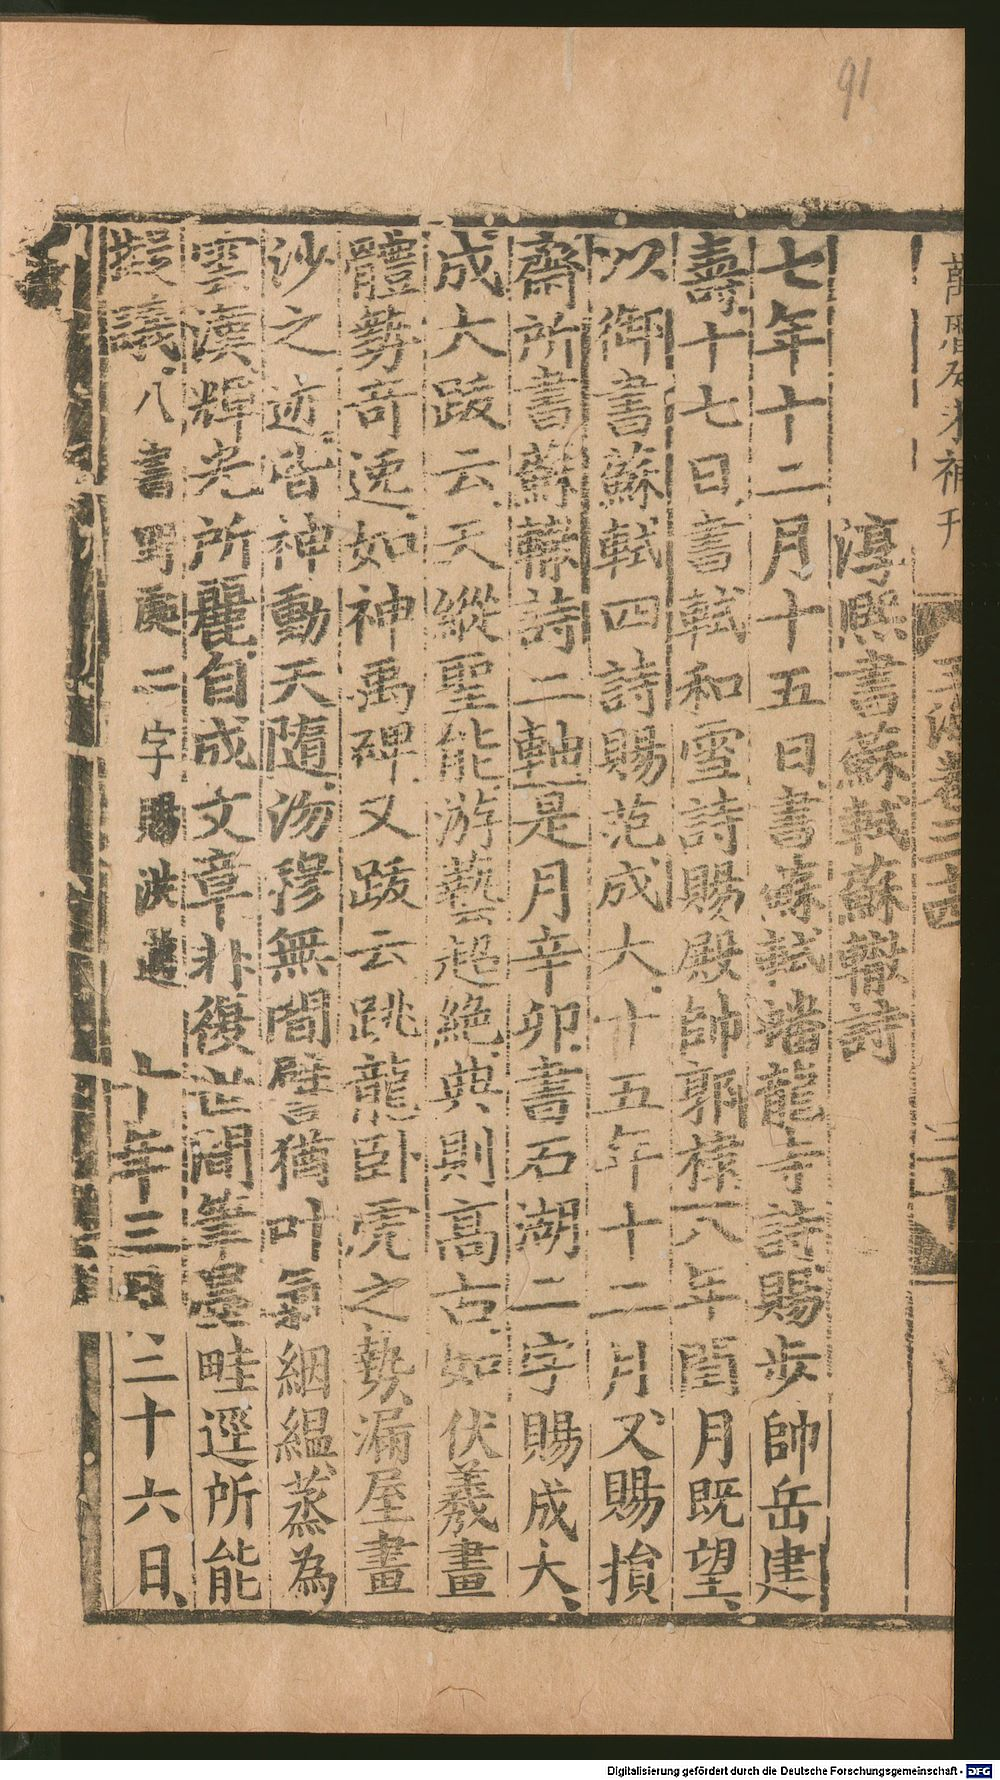 91
玉海卷三十四
三十
淳熙書蘇軾蘇轍詩
七年十二月十五日書蘇軾蟠龍寺詩賜步帥岳建
壽十七日書軾和雪詩賜殿帥郭棣八年閏月既望
以御書蘇軾四詩賜范成大十五年十二月又賜損
齋所書蘇轍詩二軸是月辛卯書石湖二字賜成大
成大跋云天縱聖能游藝超絶典則高古如伏羲畫
體勢奇逸如神禹碑又跋云跳龍臥虎之勢漏屋畫
沙之迹皆神動天隨沕穆無間譬猶叶氣絪緼蒸為
雲漢輝光所麗自成文章非復世間筆墨畦逕所能
擬議 八書野處二字賜洪邁 年三月二十六日
Digitalisierung gefördert durch die Deutsche Forschungsgemeinschaft - DFG